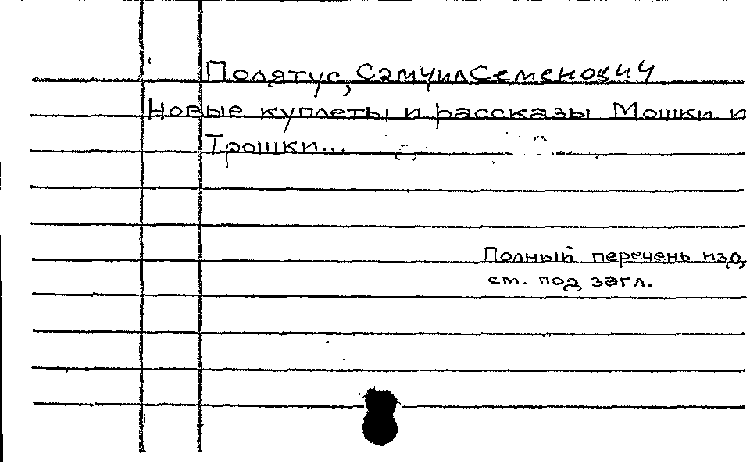 Полятус, Самуил Семенович
Новые куплеты и рассказы Мошки и
Трошки...
Полный перечень изд.
см. под загл.